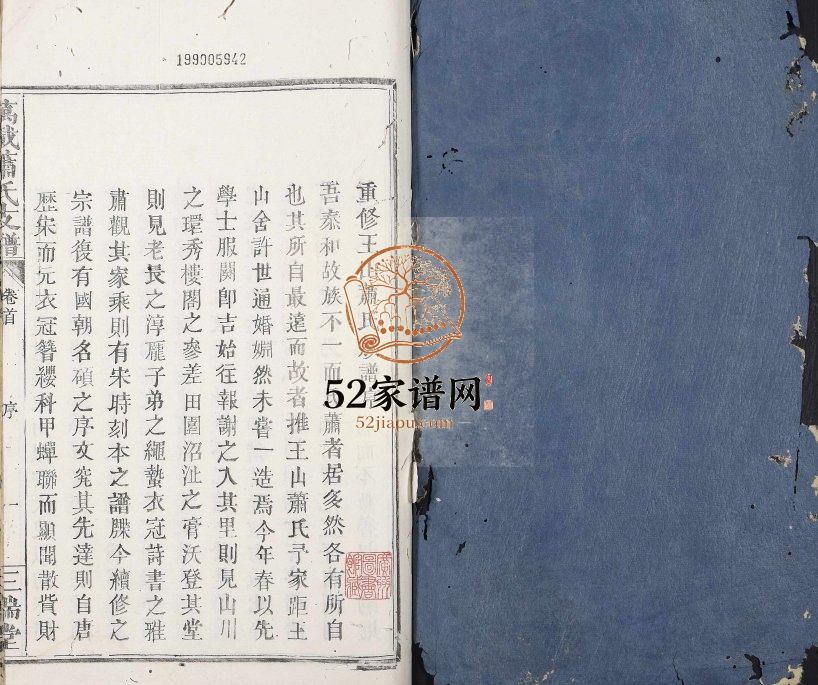 199005942
重修王山蕭氏族譜
吾泰和故族不一而蕭者居多然各有所自
也其所自最遠而故者推王山蕭氏予家距王
山舍許世通婚姻然未嘗一造焉今年春以先
學士服闋即吉始往報謝之入其里則見山川
之環秀樓閣之參差田園沼沚之膏沃登其堂
則見老長之淳龐子弟之繩蟄衣冠詩書之雅
肅觀其家乘則有宋時刻本之譜牒今續修之
宗譜復有國朝名碩之序文究其先達則自唐
歷宋而元衣冠簪纓科甲蟬聯而顯聞散貲財
萬載蕭氏支譜
卷首
序
一
三瑞堂
52家谱网
52jiapu.com